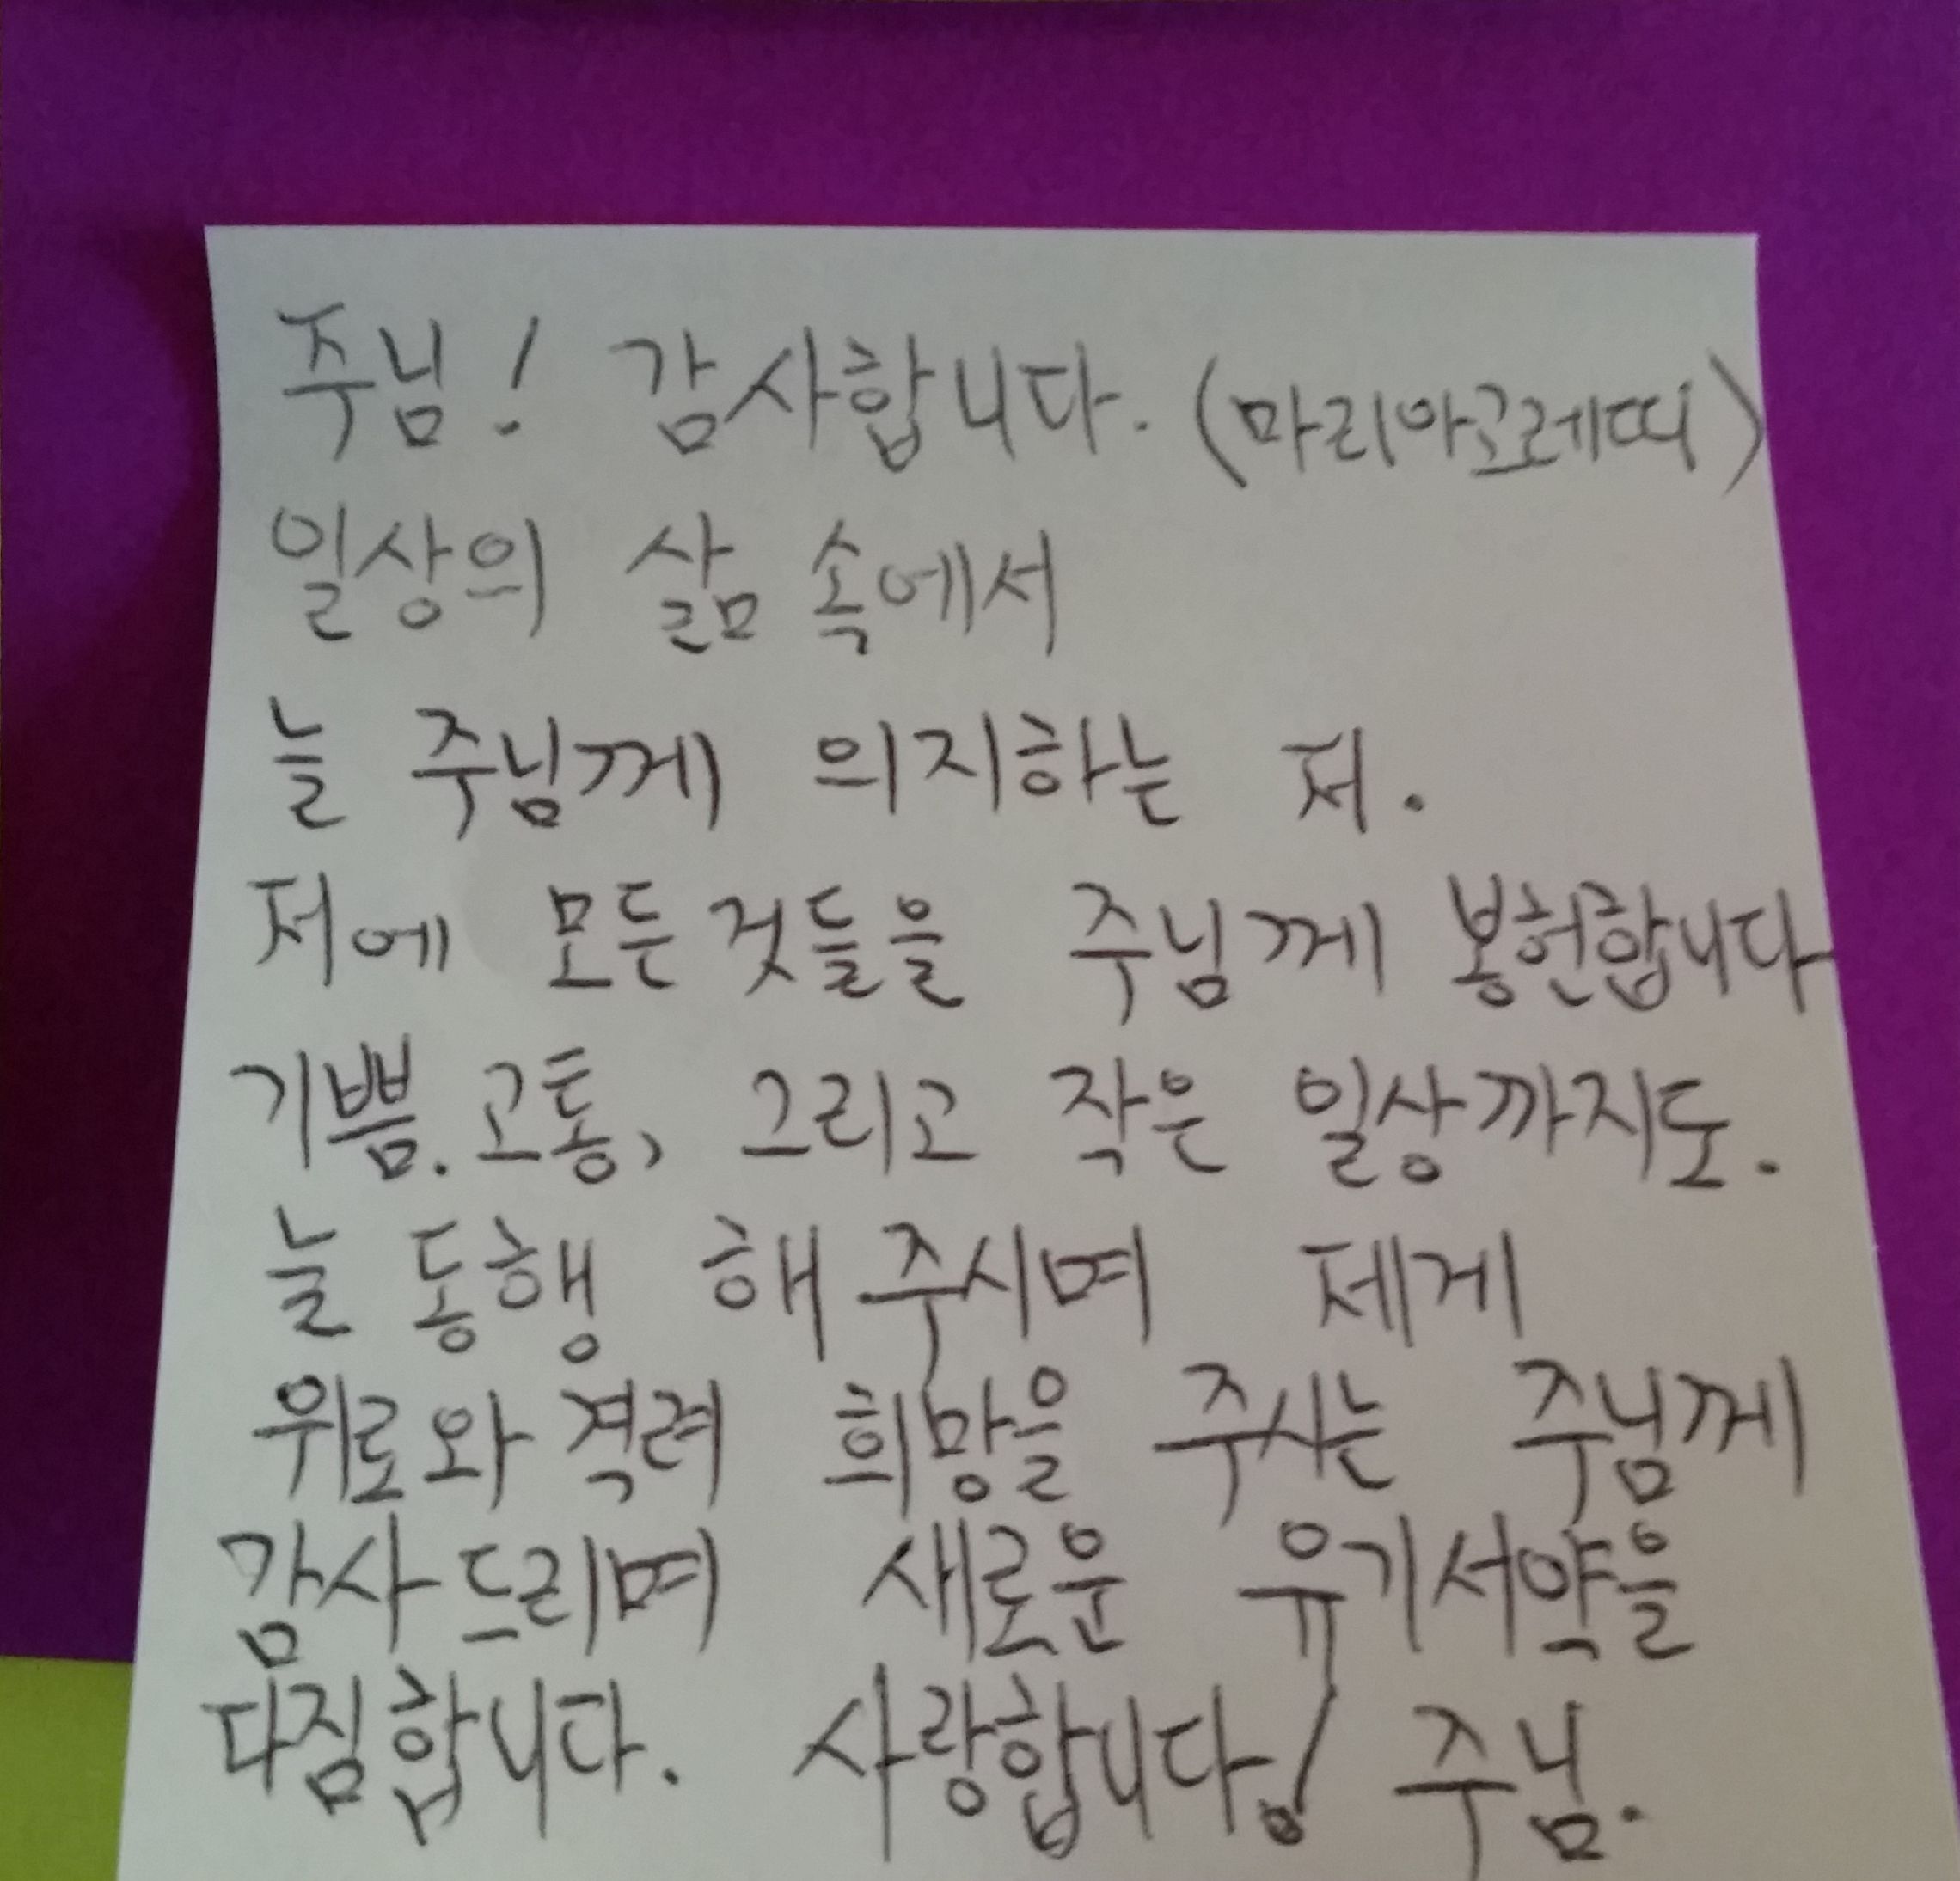 주님! 감사합니다. (마리아고레띠)
일상의 삶 속에서
늘 주님께 의지하는 저.
저에 모든것들을 주님께 봉헌합니다
기쁨. 고통, 그리고 작은 일상까지도.
늘 동행 해 주시며 제게
위로와 격려 희망을 주시는 주님께
감사드리며 새로운 유기서약을
다짐합니다. 사랑합니다! 주님.